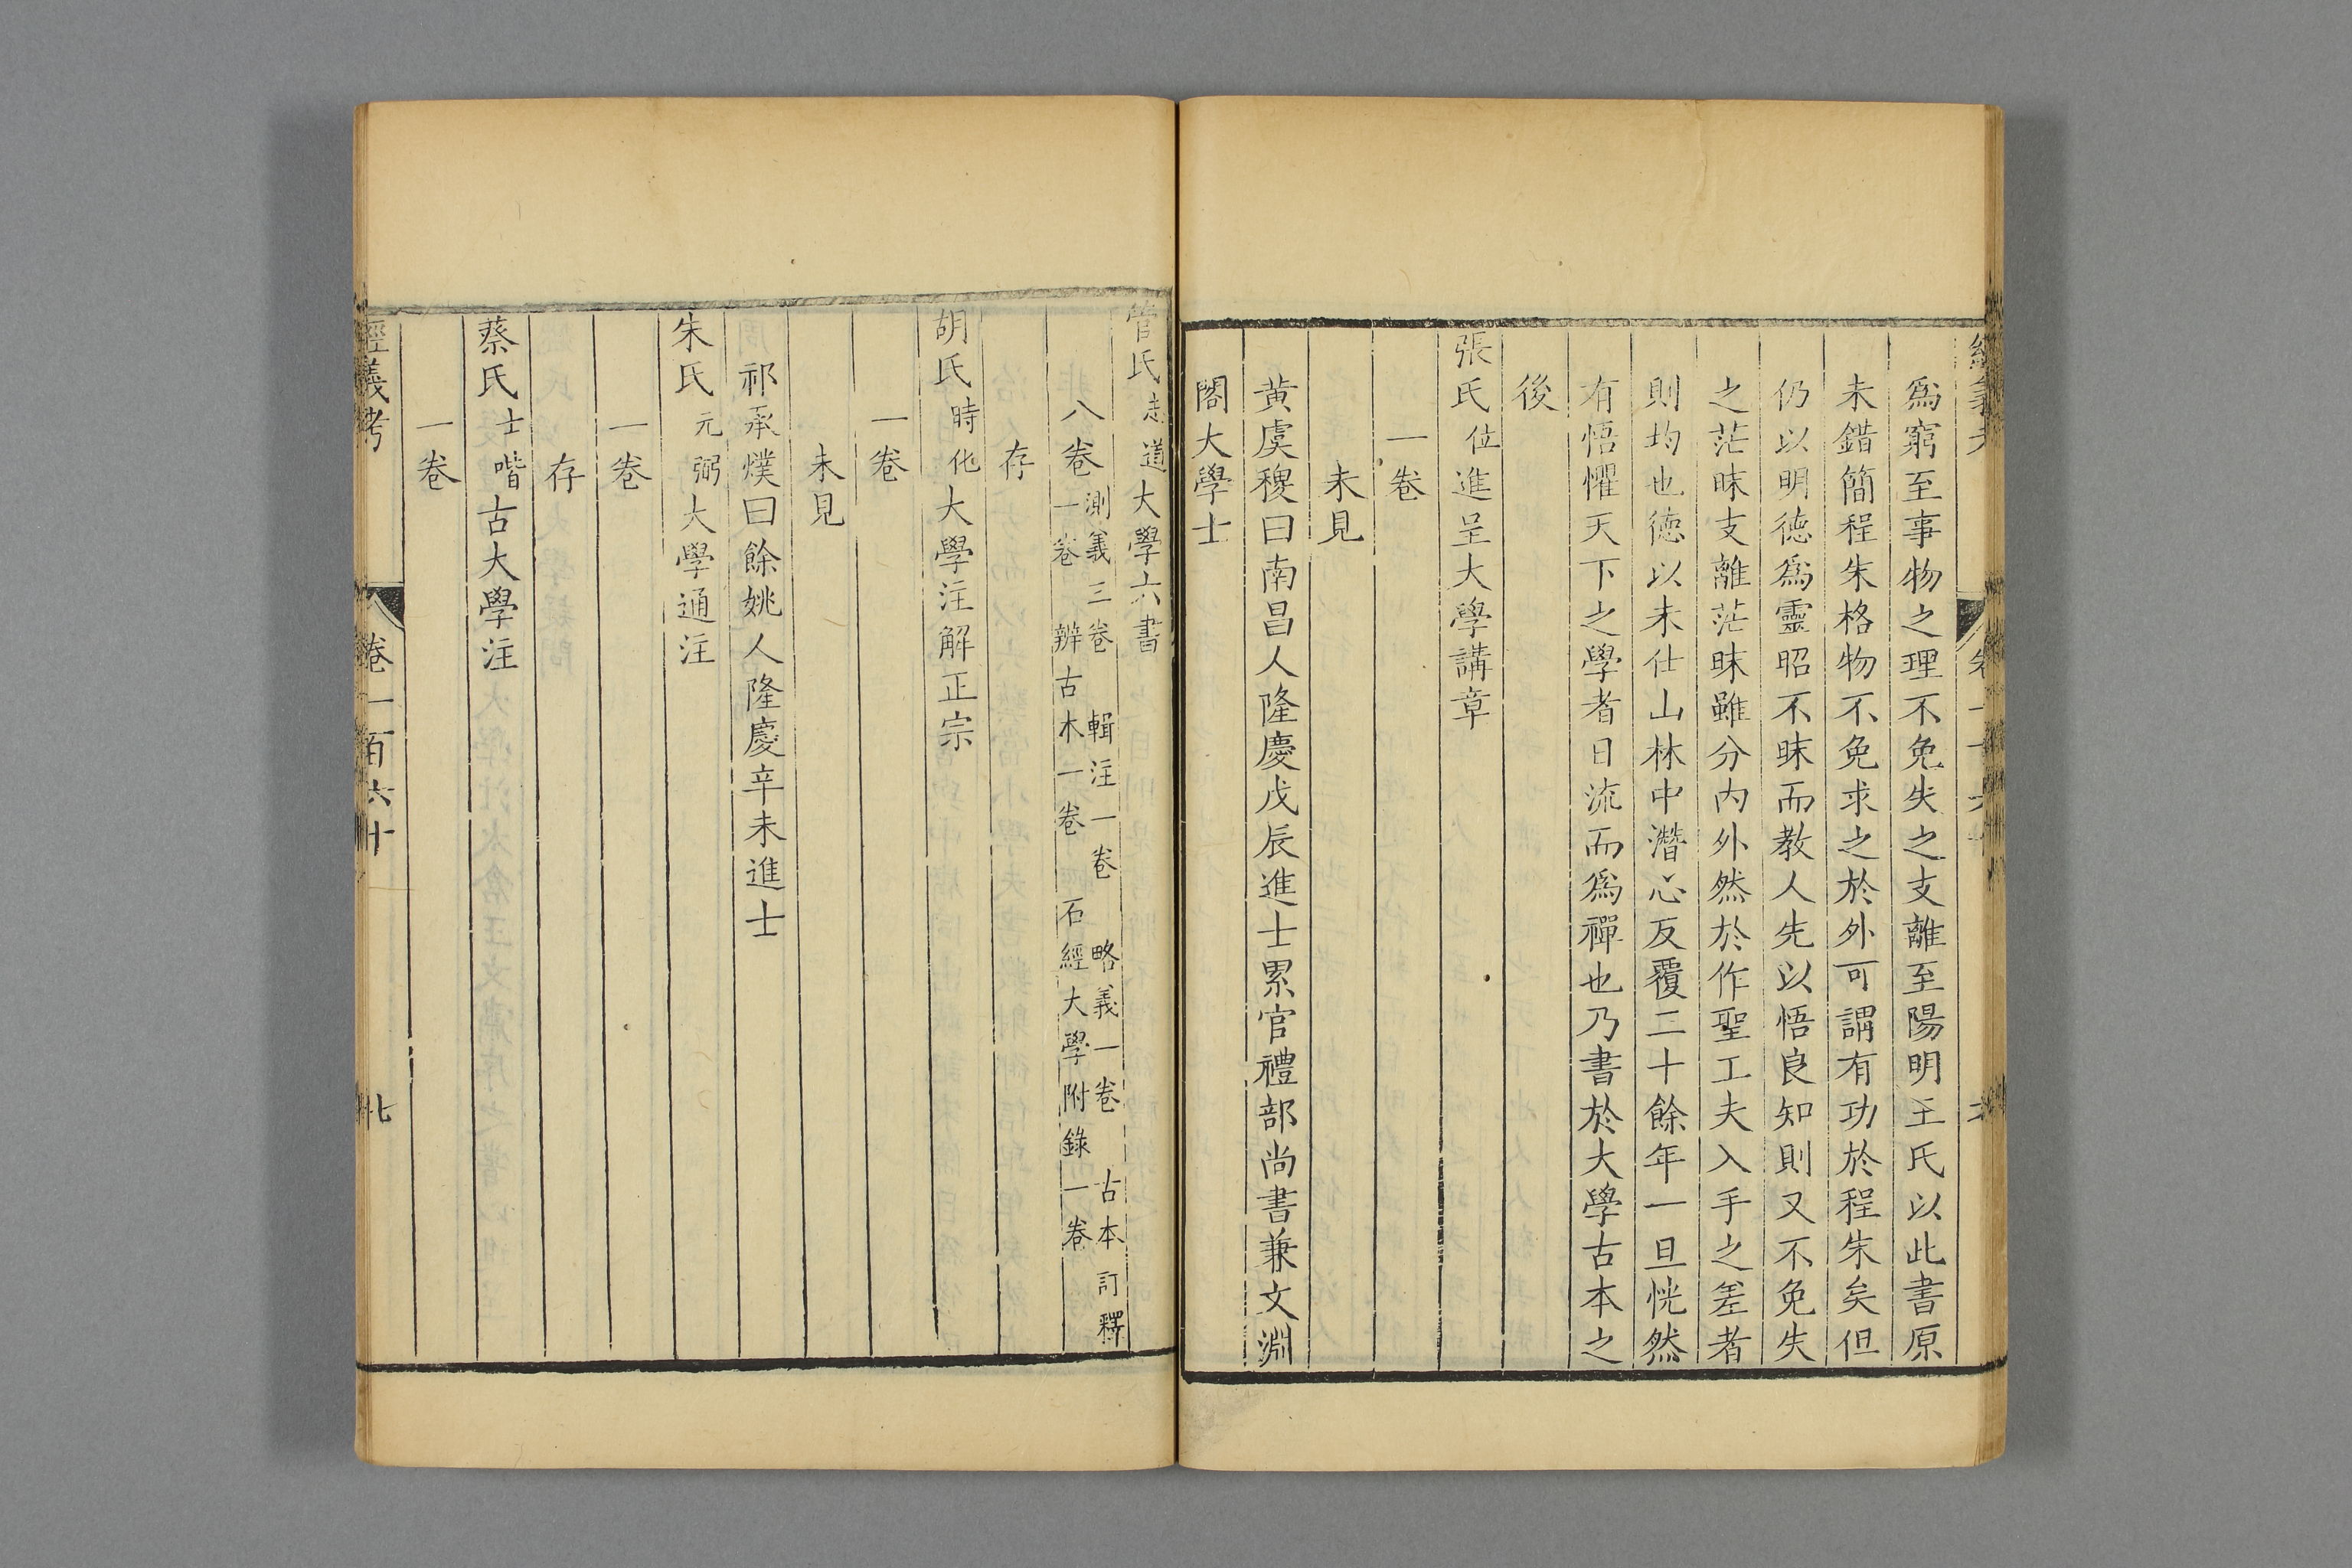 爲窮至事物之理不免失之支離至陽明王氏以此書原
未錯簡程朱格物不免求之於外可謂有功於程朱矣但
仍以明德爲靈昭不昧而教人先以悟良知則又不免失
之茫昧支離茫昧雖分內外然於作聖工夫入手之差者
則均也德以未仕山林中潛心反覆二十餘年一旦恍然
有悟懼天下之學者日流而爲禪也乃書於大學古本之
後
張氏位進呈大學講章
一卷
未見
黃虞稷曰南昌人隆慶戊辰進士累官禮部尚書兼文淵
閣大學士
管氏志道大學六書
八卷測義三卷 輯注一卷 略義一卷 古本訂釋
一卷 辨古本一卷 石經大學附錄一卷
存
胡氏時化大學注解正宗
一卷
未見
祁承㸁曰餘姚人隆慶辛未進士
朱氏元弼大學通注
一卷
存
蔡氏士喈古大學注
一卷
經義考 卷一百六十